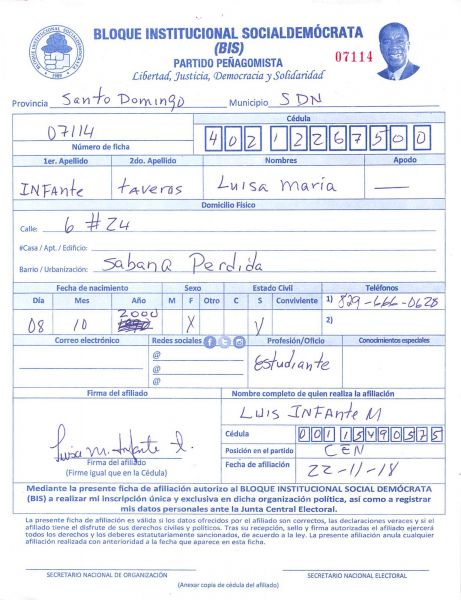 BLOQUE INSTITUCIONAL SOCIALDEMÓCRATA
(BIS)
PARTIDO PEÑAGOMISTA
Libertad, Justicia, Democracia y Solidaridad
07114
Provincia Santo Domingo Municipio SDN
07114
Número de ficha
Cédula
40212267500
1er. Apellido 2do. Apellido Nombres Apodo
INFante taveras Luisa Maria —
Domicilio Físico
Calle: 6 #24
#Casa / Apt. / Edificio:
Barrio / Urbanización: Sabana Perdida
Fecha de nacimiento Sexo Estado Civil Teléfonos
Día Mes Año M F Otro C S Conviviente 1) 829-666-0628
08 10 2000 X V 2)
Correo electrónico Redes sociales Profesión/Oficio Conocimientos especiales
@
@
@
Estudiante
Firma del afiliado Nombre completo de quien realiza la afiliación
LUIS INFAnte M
Cédula 00115490575
Posición en el partido CEN
Fecha de afiliación 22-11-18
Luisa M. Infante
Firma del afiliado
(Firme igual que en la Cédula)
Mediante la presente ficha de afiliación autorizo al BLOQUE INSTITUCIONAL SOCIAL DEMÓCRATA
(BIS) a realizar mi inscripción única y exclusiva en dicha organización política, así como a registrar
mis datos personales ante la Junta Central Electoral.
La presente ficha de afiliación es válida si los datos ofrecidos por el afiliado son correctos, las declaraciones veraces y si el
afiliado tiene el disfrute de sus derechos civiles y políticos. Tras su recepción, sello y firma autorizadas el afiliado ejercerá
todos los derechos y los deberes estatutariamente sancionados, de acuerdo a la ley. La presente afiliación anula cualquier
afiliación realizada con anterioridad a la fecha que aparece en esta ficha.
SECRETARIO NACIONAL DE ORGANIZACIÓN SECRETARIO NACIONAL ELECTORAL
(Anexar copia de cédula del afiliado)